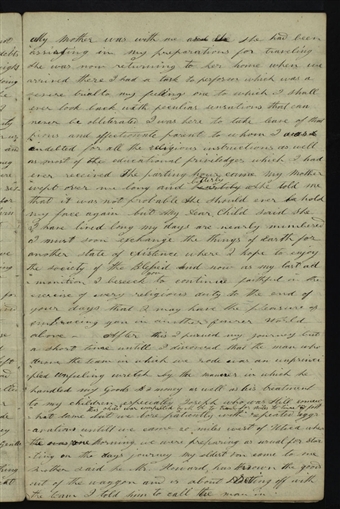 My Mother was with me and she had been
assisting in my preparations for traveling
she was now returning to her home when we
arrived there I had a task to perform which was a
severe trial to my feelings one to which I shall
ever look back with peculiar sensations that can
never be obliterated I was here to take leave of that
pious and affectionate parent to whom I was
indebted for all the religious instructions as well
as most of the educational priviledges which I had
ever received The parting hour come my Mother
wept over me long and bitterly she told me
that it was not probable she should ever behold
my face again but My Dear Child said she
I have lived long my days are nearly numbered
I must soon exchange the things of Earth for
another state of existence where I hope to enjoy
the society of the Blessed and now as my last ad
monition I beseech you to continue faithful in the
exercise of every religious duty to the end of
your days that I may have the pleasure of
embracing you in another fairer World
above. After this I pursued my journey but
a short time until I discovered that the man who
drove the team in which we rode was an unprinci
pled unfeeling wretch by the manner in which he
handled my Goods & money as well as his treatment
to my children especially Joseph who was still lame
this child was compelled by Mr. to travel for miles at a time on foot
but same that we bore patiently with repeated aggr
avations untill we came 20 miles west of Utica when
one morning we were preparing as usual for star
ting on the days journey My eldest son came to me
Mother said he Mr. Howard, has thrown the goods
out of the waggon and is about setting off with
the team I told him to call the man in